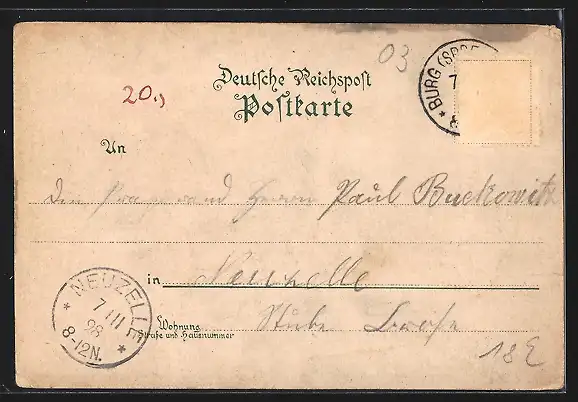 03
Deutsche Reichspost
Postkarte
20.,
BURG (SPRE
7
An
Herrn Paul Buckowitz
in Neuzelle
NEUZELLE
7 III
98
8-12N.
Wohnung
Straße und Hausnummer
Stube
18 E